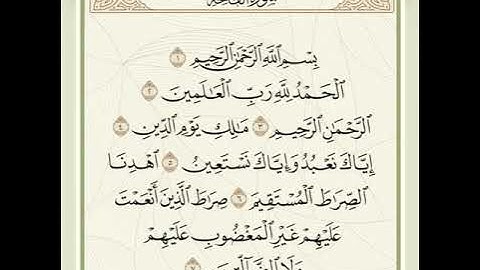 بِسْمِ اللَّهِ الرَّحْمَٰنِ الرَّحِيمِ ١
الْحَمْدُ لِلَّهِ رَبِّ الْعَالَمِينَ ٢
الرَّحْمَٰنِ الرَّحِيمِ ٣ مَالِكِ يَوْمِ الدِّينِ ٤
إِيَّاكَ نَعْبُدُ وَإِيَّاكَ نَسْتَعِينُ ٥ اهْدِنَا
الصِّرَاطَ الْمُسْتَقِيمَ ٦ صِرَاطَ الَّذِينَ أَنْعَمْتَ
عَلَيْهِمْ غَيْرِ الْمَغْضُوبِ عَلَيْهِمْ